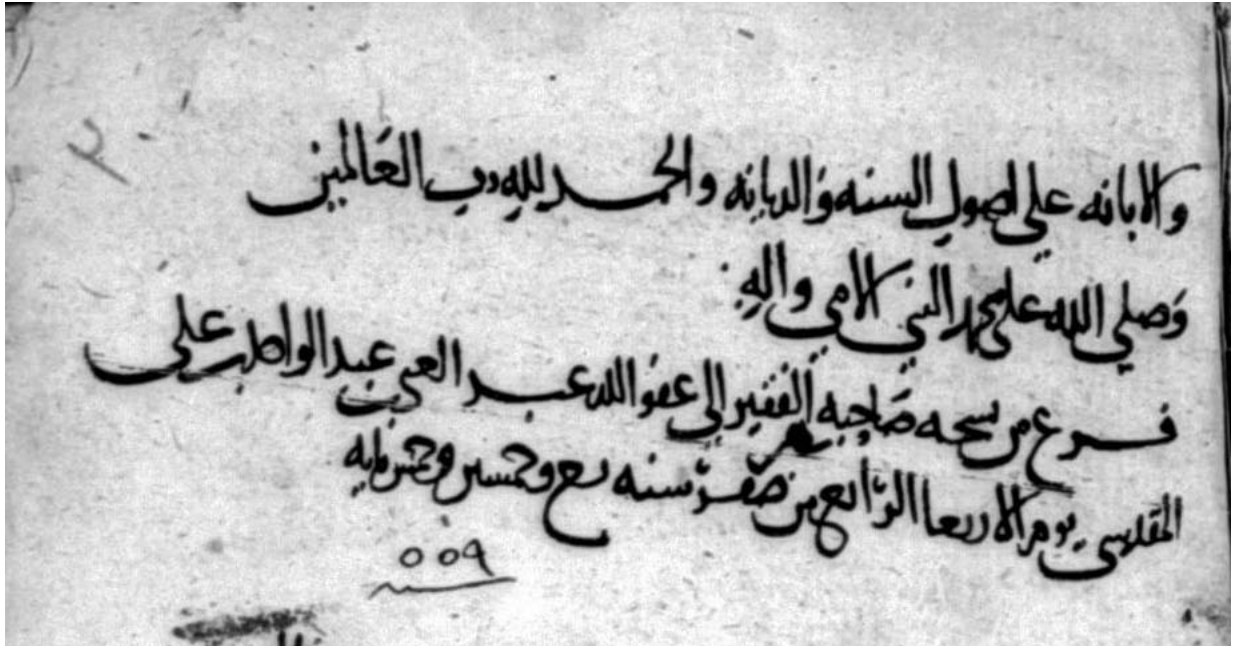 والابانه على اصول السنه والديانه والحمد لله رب العالمين
وصلى الله على محمد النبي الامي واله
فرغ من نسخه صاحبه الفقير الى عفو الله عبد الغني بن عبد الواحد بن علي
المقدسي يوم الاربعا الرابع من صفر سنه تسع وخمسين وخمسمايه
٥٥٩